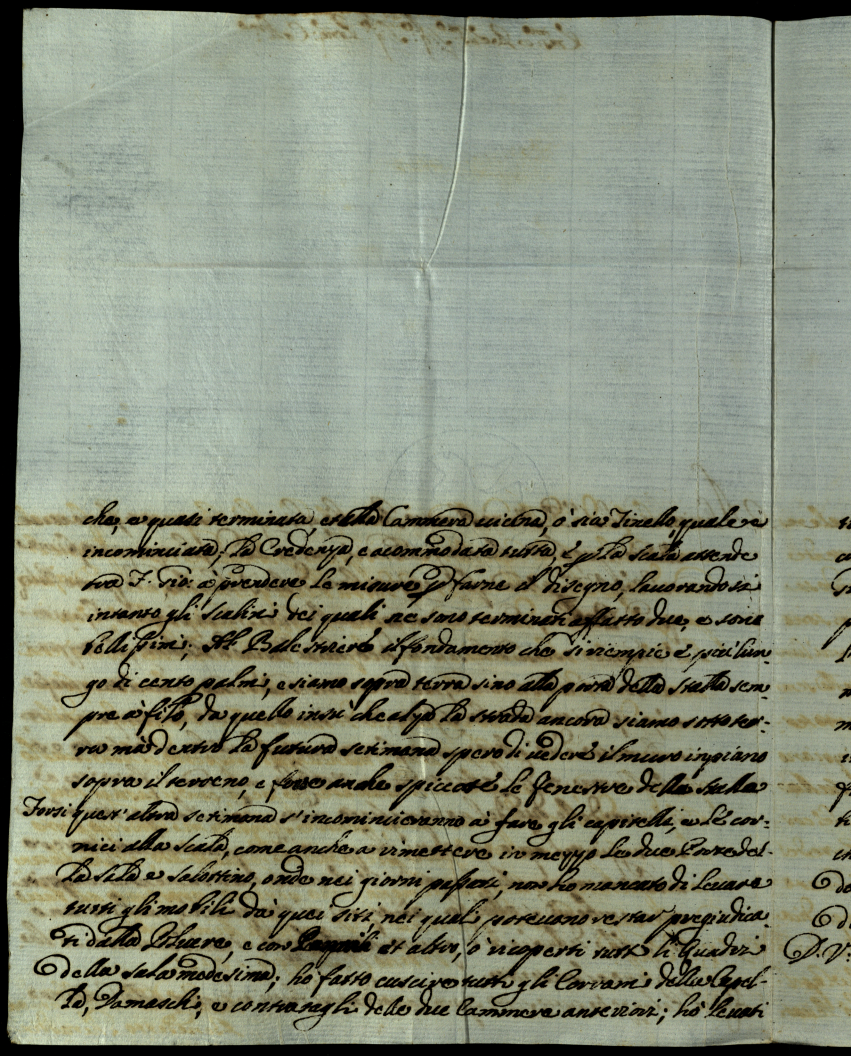 che, e quasi terminata, et alla Cammera vicina, ò sia Tinello, quale è
incominciata; la Credenza, e acommodata tutta, È p la scala attende
tra F. Gio: à prendere le misure p farne il disegno, lavorandosi
intanto gli scalini dei quali ne sono terminati affatto due, e sono
bellissimi; Al Balestriere il fondamento che si riempie è più lun-
go di cento palmi, e siamo sopra terra sino alla porta della stalla sem
pre à filo, da quello insù che alza la strada ancora siamo sotto ter-
ra mà dentro la futura setimana spero di vedere il muro in piano
sopra il terreno, e anche spiccate le fenestre della stalla
Forsi quest'altra setimana s'incomincieranno à fare gli capitelli, e le cor-
nici alla scala, come anche a rimettere in mezzo le due Porte del-
la sala e salottino, onde nei giorni passati, non ho mancato di levare
tutti gli mobili da quei siti nei quali potevano restar pregiudica
ti dalla Polvere, e con et altro, ò ricoperti tutti li Quadri
della sala medesima; hò fatto cuscire tutti gli Corami della Capel-
la, Damaschi, e contratagli delle due Cammere anteriori; hò levati